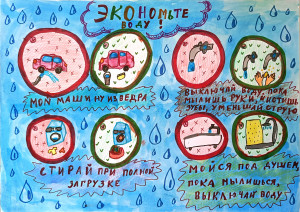 ЭКОНОМЬТЕ
ВОДУ!
МОЙ МАШИНУ ИЗ ВЕДРА
ВЫКЛЮЧАЙ ВОДУ, ПОКА
МЫЛИШЬ РУКИ, ЧИСТИШЬ
ЗУБЫ, УМЕНЬШАЙ СТРУЮ
СТИРАЙ ПРИ ПОЛНОЙ
ЗАГРУЗКЕ
МОЙСЯ ПОД ДУШЕМ,
ПОКА МЫЛИШЬСЯ,
ВЫКЛЮЧАЙ ВОДУ